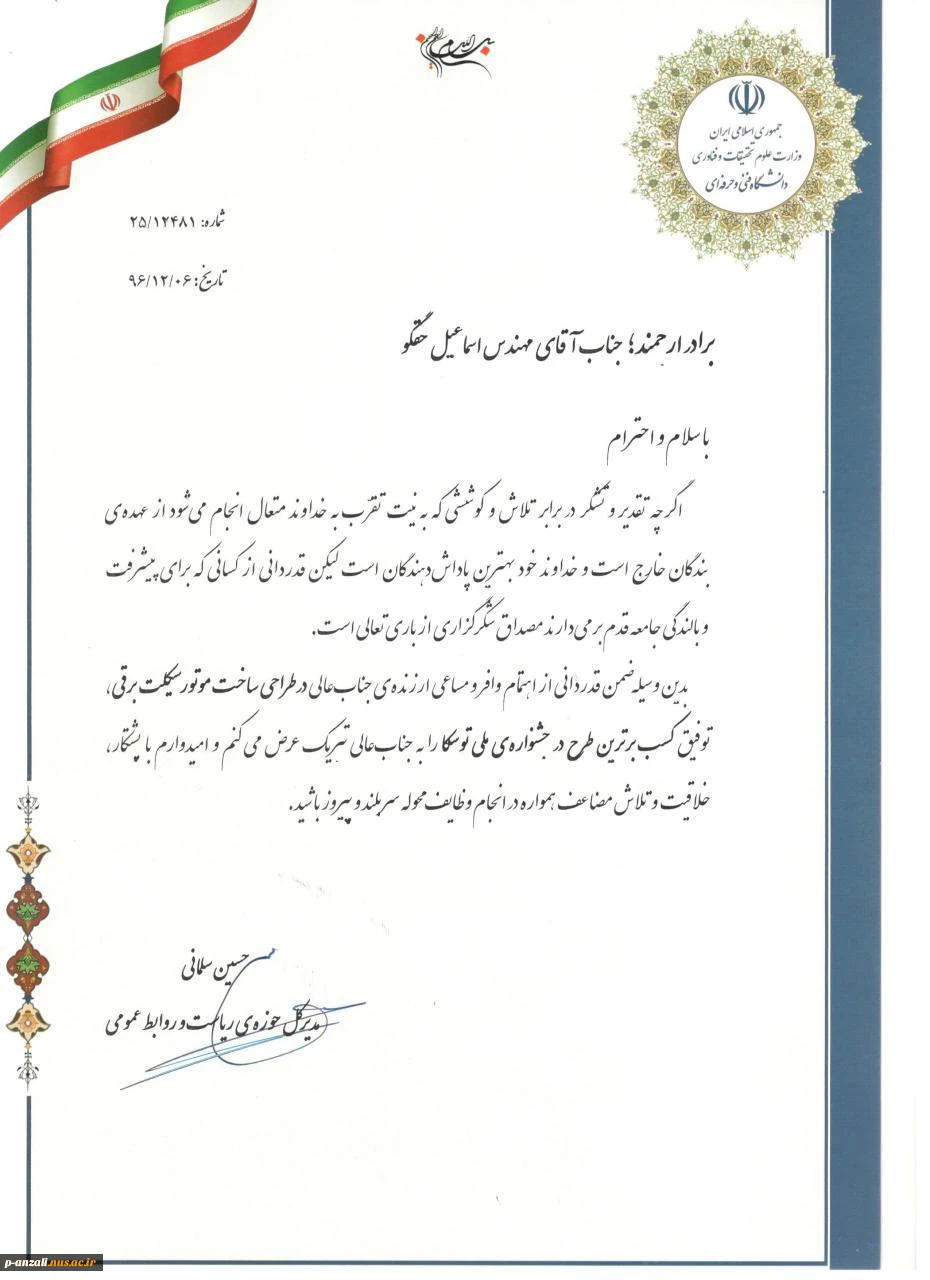 بسم الله الرحمن الرحیم
جمهوری اسلامی ایران
وزارت علوم تحقیقات و فناوری
دانشگاه فنی و حرفه‌ای
شماره: ۲۵/۱۲۴۸۱
تاریخ: ۹۶/۱۲/۰۶
برادر ارجمند؛ جناب آقای مهندس اسماعیل حقگو
با سلام و احترام
اگرچه تقدیر و تشکر در برابر تلاش و کوششی که به نیت تقرّب به خداوند متعال انجام می‌شود از عهده‌ی
بندگان خارج است و خداوند خود بهترین پاداش‌دهندگان است لیکن قدردانی از کسانی که برای پیشرفت
و بالندگی جامعه قدم برمی‌دارند مصداق شکرگزاری از باری تعالی است.
بدین وسیله ضمن قدردانی از اهتمام وافر و مساعی ارزنده‌ی جناب‌عالی در طراحی ساخت موتورسیکلت برقی،
توفیق کسب برترین طرح در جشنواره‌ی ملی توسکا را به جناب‌عالی تبریک عرض می‌کنم و امیدوارم با پشتکار،
خلاقیت و تلاش مضاعف همواره در انجام وظایف محوله سربلند و پیروز باشید.
حسین سلمانی
مدیرکل حوزه‌ی ریاست و روابط عمومی
p-anzali.nus.ac.ir